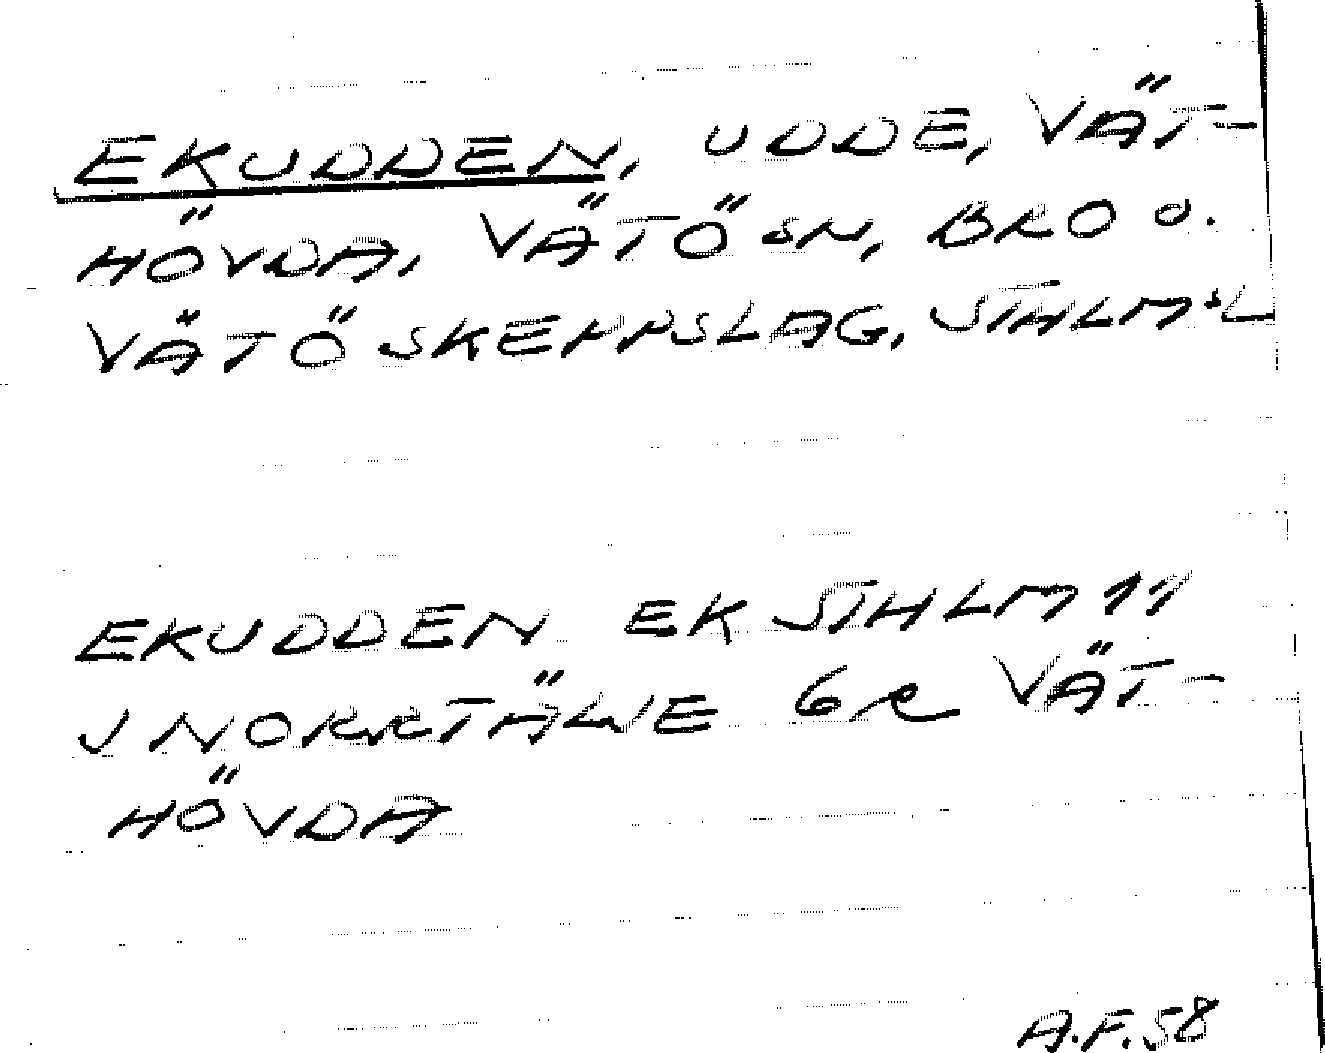 EKUDDEN, UDDE, VÄT-
HÖVDA, VÄTÖ SN, BRO O.
VÄTÖ SKEPPSLAG, STHLMSL
EKUDDEN EK STHLM 11
J NORRTÄLJE 6R VÄT-
HÖVDA
A.F. 58